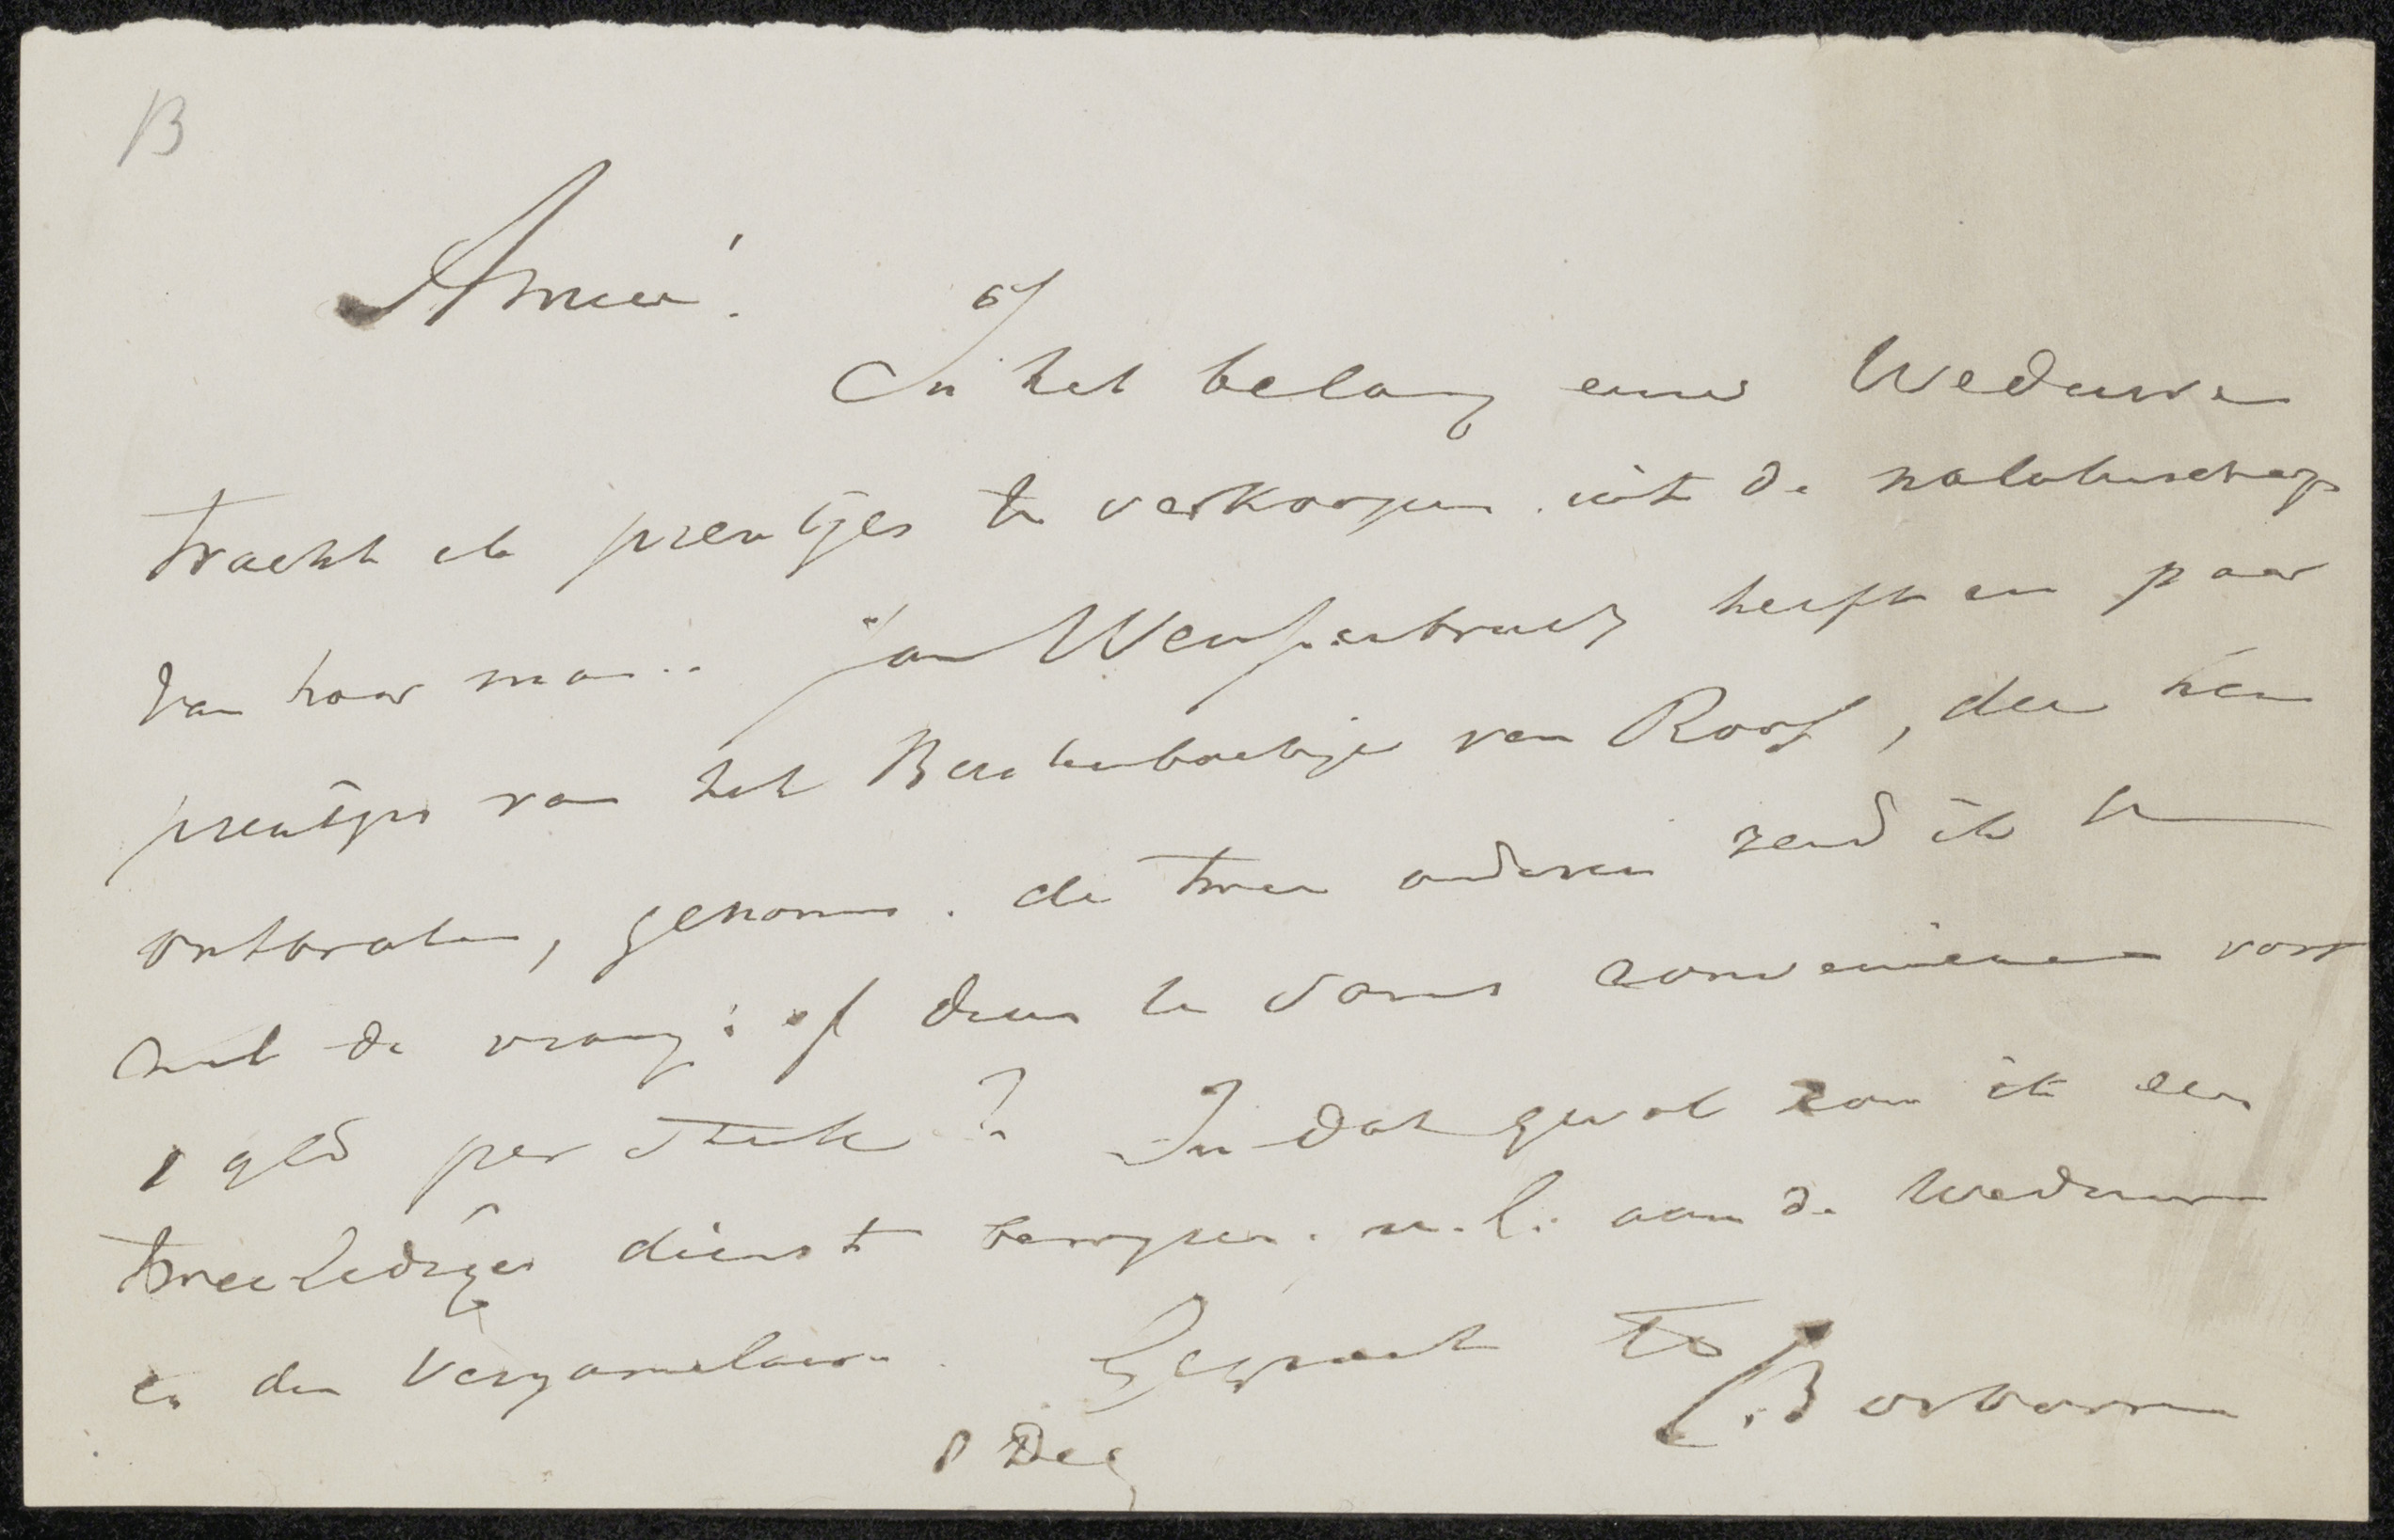 B
Amice!
In het belang eener Weduwe
tracht ik prentjes te verkoopen uit de nalatenschap
van haar man. Jan Weissenbruch heeft een paar
prentjes van het Beestenboekje van Roos, die hem
ontbraken, genomen. de twee anderen zend ik U
met de vraag: of deze te Uwent convenieeren voor
1 gld per stuk? In dat geval zou ik een
tweeledige dienst bewijzen. n.l. aan de Weduwe
en den Verzamelaar. Gegroet tt
Bosboom
8 Dec